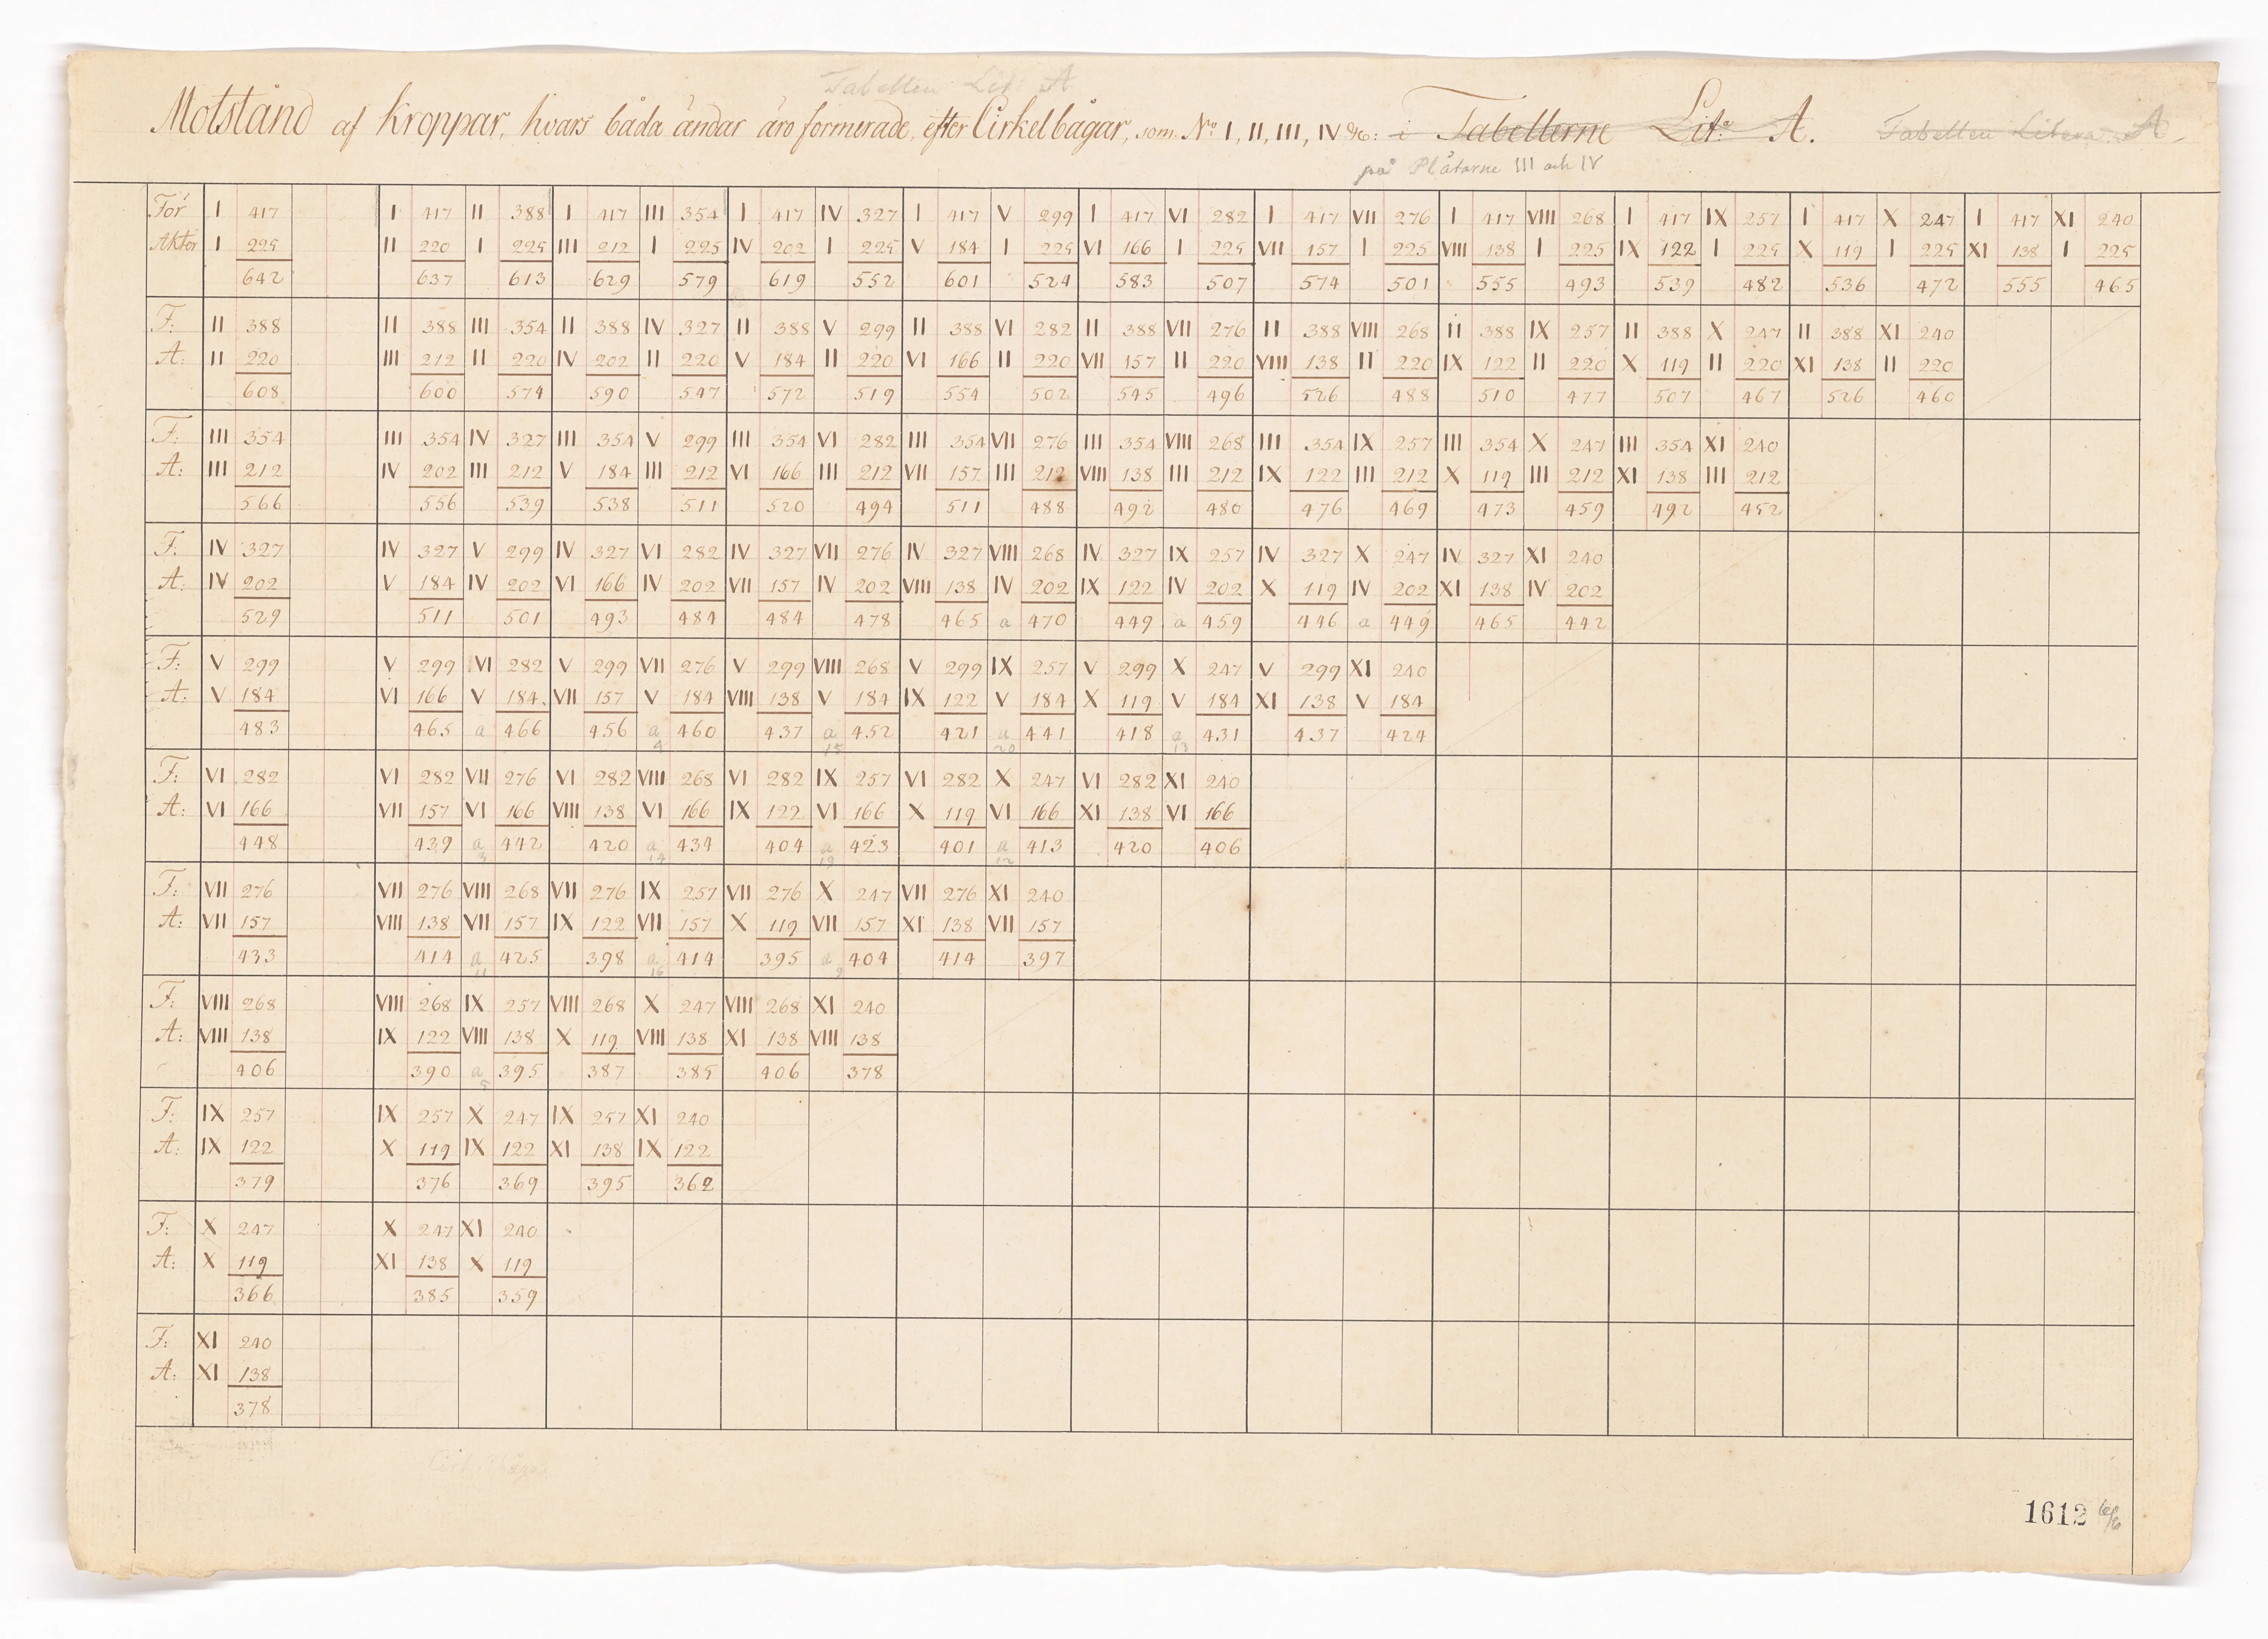 Tabellen Lit: A
Motstånd af kroppar, hvars båda ändar äro formerade, efter Cirkelbågar, som N:o I, II, III, IV &c: i Tabellerne Lit:a A. Tabellen Litera A
på Plåtarne III och IV
För I 417 I 417 II 388 I 417 III 354 I 417 IV 327 I 417 V 299 I 417 VI 282 I 417 VII 276 I 417 VIII 268 I 417 IX 257 I 417 X 247 I 417 XI 240
Akter I 225 II 220 I 225 III 212 I 225 IV 202 I 225 V 184 I 225 VI 166 I 225 VII 157 I 225 VIII 138 I 225 IX 122 I 225 X 119 I 225 XI 138 I 225
642 637 613 629 579 619 552 601 524 583 507 574 501 555 493 539 482 536 472 555 465
F: II 388 II 388 III 354 II 388 IV 327 II 388 V 299 II 388 VI 282 II 388 VII 276 II 388 VIII 268 II 388 IX 257 II 388 X 247 II 388 XI 240
A: II 220 III 212 II 220 IV 202 II 220 V 184 II 220 VI 166 II 220 VII 157 II 220 VIII 138 II 220 IX 122 II 220 X 119 II 220 XI 138 II 220
608 600 574 590 547 572 519 554 502 545 496 526 488 510 477 507 467 526 460
F: III 354 III 354 IV 327 III 354 V 299 III 354 VI 282 III 354 VII 276 III 354 VIII 268 III 354 IX 257 III 354 X 247 III 354 XI 240
A: III 212 IV 202 III 212 V 184 III 212 VI 166 III 212 VII 157 III 212 VIII 138 III 212 IX 122 III 212 X 119 III 212 XI 138 III 212
566 556 539 538 511 520 494 511 488 492 480 476 469 473 459 492 452
F: IV 327 IV 327 V 299 IV 327 VI 282 IV 327 VII 276 IV 327 VIII 268 IV 327 IX 257 IV 327 X 247 IV 327 XI 240
A: IV 202 V 184 IV 202 VI 166 IV 202 VII 157 IV 202 VIII 138 IV 202 IX 122 IV 202 X 119 IV 202 XI 138 IV 202
529 511 501 493 484 484 478 465 a 470 449 a 459 446 a 449 465 442
F: V 299 V 299 VI 282 V 299 VII 276 V 299 VIII 268 V 299 IX 257 V 299 X 247 V 299 XI 240
A: V 184 VI 166 V 184 VII 157 V 184 VIII 138 V 184 IX 122 V 184 X 119 V 184 XI 138 V 184
483 465 a 466 456 a 460 437 a 452 421 a 441 418 a 431 437 424
4 15 20 13
F: VI 282 VI 282 VII 276 VI 282 VIII 268 VI 282 IX 257 VI 282 X 247 VI 282 XI 240
A: VI 166 VII 157 VI 166 VIII 138 VI 166 IX 122 VI 166 X 119 VI 166 XI 138 VI 166
448 439 a 442 420 a 434 404 a 423 401 a 413 420 406
3 14 19 12
F: VII 276 VII 276 VIII 268 VII 276 IX 257 VII 276 X 247 VII 276 XI 240
A: VII 157 VIII 138 VII 157 IX 122 VII 157 X 119 VII 157 XI 138 VII 157
433 414 a 425 398 a 414 395 a 404 414 397
11 16 9
F: VIII 268 VIII 268 IX 257 VIII 268 X 247 VIII 268 XI 240
A: VIII 138 IX 122 VIII 138 X 119 VIII 138 XI 138 VIII 138
406 390 a 395 387 385 406 378
5
F: IX 257 IX 257 X 247 IX 257 XI 240
A: IX 122 X 119 IX 122 XI 138 IX 122
379 376 369 395 362
F: X 247 X 247 XI 240
A: X 119 XI 138 X 119
366 385 359
F: XI 240
A: XI 138
378
Cirkelbågar
1612 6/6